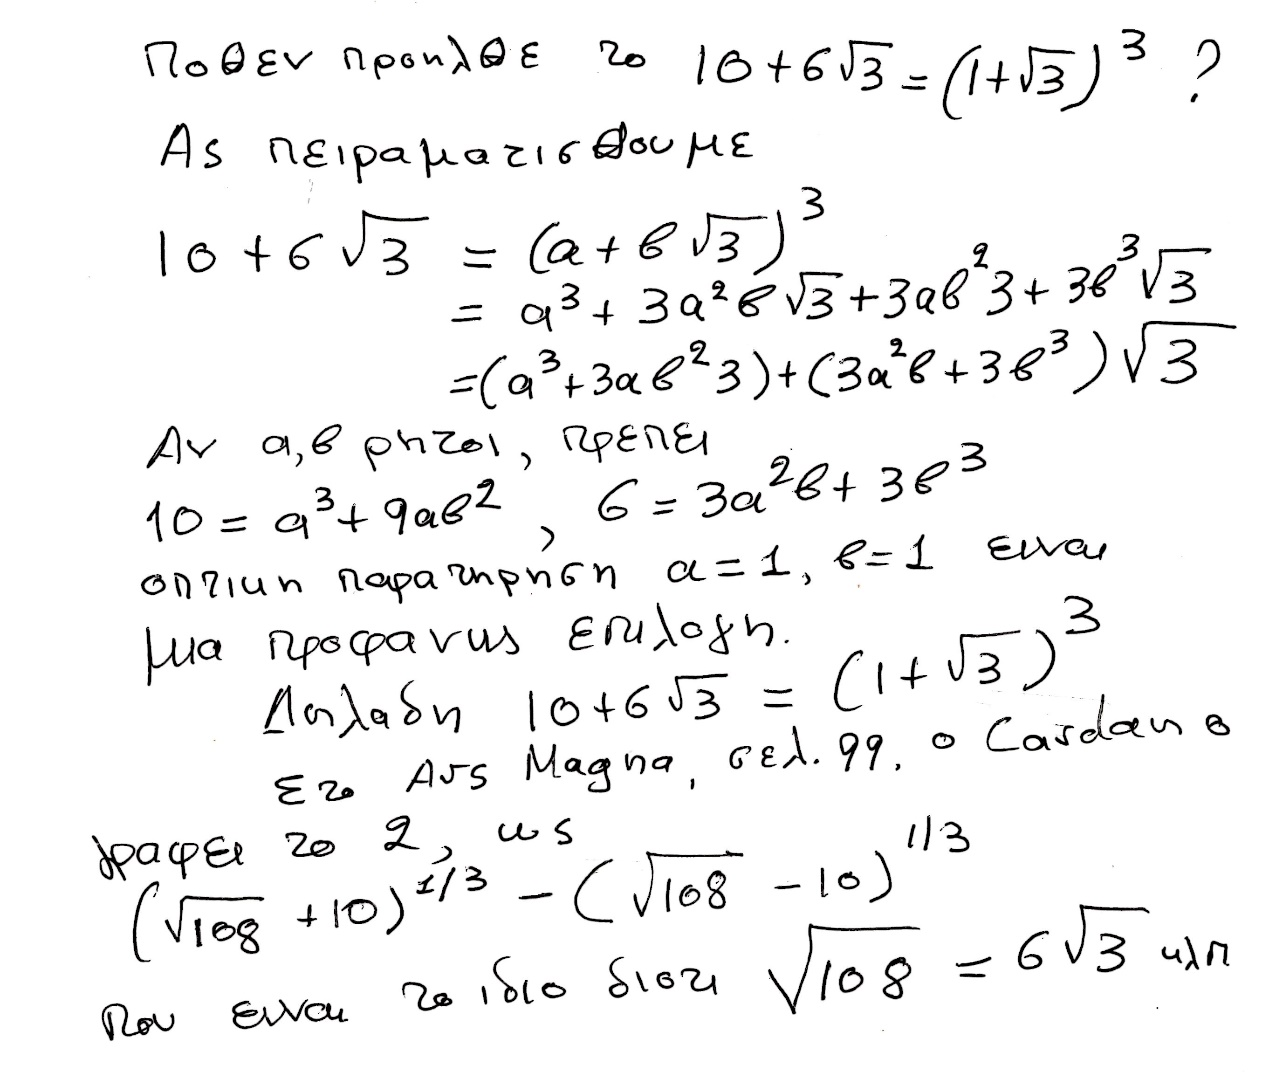 Ποθεν προηλθε το 10+6√3=(1+√3)^3 ?
Ας πειραματισθουμε
10+6√3 = (α+β√3)^3
= α^3+3α^2β√3+3αβ^2 3+3β^3√3
=(α^3+3αβ^2 3)+(3α^2β+3β^3)√3
Αν α,β ρητοι, πρεπει
10=α^3+9αβ^2, 6=3α^2β+3β^3
οπτικη παρατηρηση α=1, β=1 ειναι
μια προφανως επιλογη.
Δηλαδη 10+6√3 = (1+√3)^3
Στο Ars Magna, σελ. 99, ο Cardano
γραφει το 2, ως
(√108 +10)^1/3 - (√108 -10)^1/3
που ειναι το ιδιο διοτι √108 = 6√3 κλπ